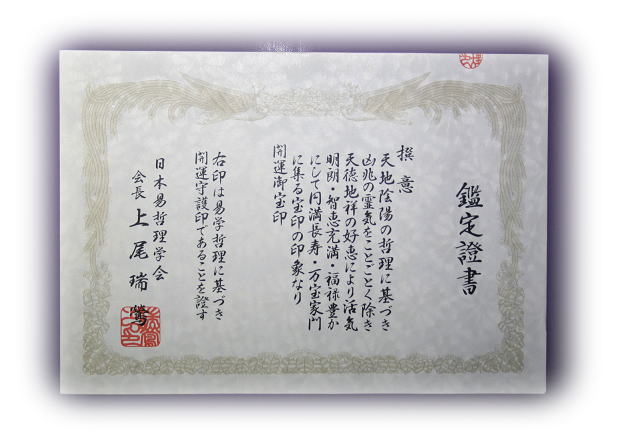 鑑定證書
撰意
天地陰陽の哲理に基づき
凶兆の霊気をことごとく除き
天徳地祥の好恵により活気
明朗・智恵充満・福禄豊か
にして円満長寿・万宝家門
に集る宝印の印象なり
開運御宝印
右印は易学哲理に基づき
開運守護印であることを證す
日本易哲理学会
会長 上尾瑞鶯